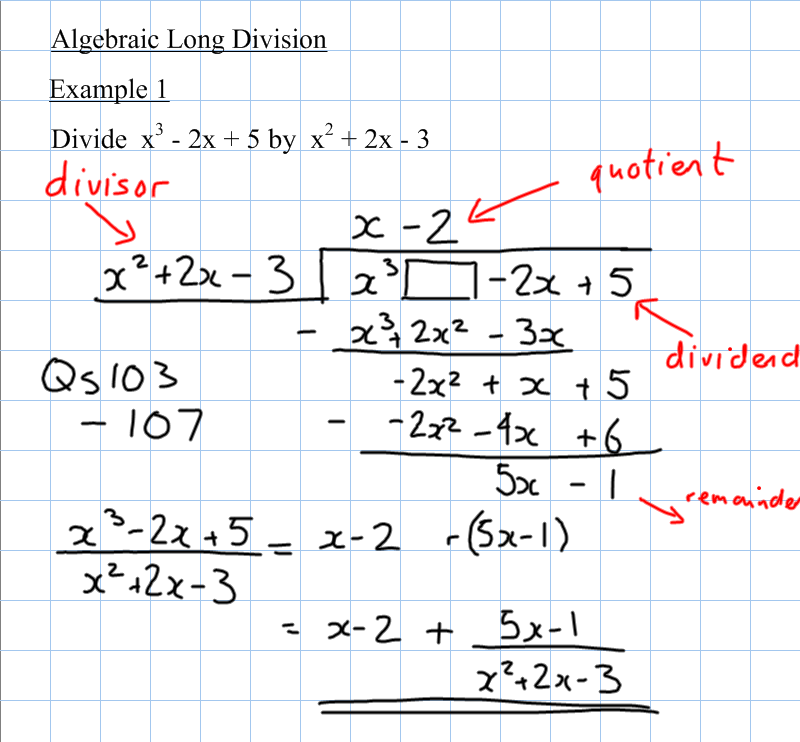 Algebraic Long Division
Example 1
Divide x³ - 2x + 5 by x² + 2x - 3
divisor
quotient
x - 2
x² + 2x - 3 x³ □ - 2x + 5
- x³ + 2x² - 3x
dividend
Qs 103
- 107
-2x² + x + 5
- -2x² - 4x + 6
5x - 1
remainde
x³ - 2x + 5 / x² + 2x - 3 = x - 2 r (5x - 1)
= x - 2 + 5x - 1 / x² + 2x - 3